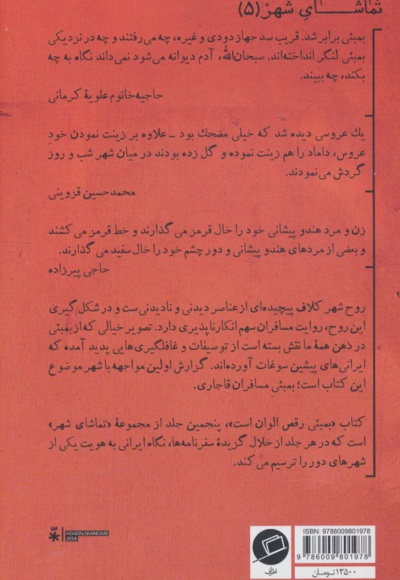 تماشای شهر (۵)
بمبئی برابر شد. قریب سد جهاز دودی و غیره، چه می‌رفتند و چه در نزدیکی
بمبئی لنگر انداخته‌اند. سبحان‌الله، آدم دیوانه می‌شود نمی‌داند نگاه به چه
بکند، چه ببیند.
حاجیه‌خانوم علویهٔ کرمانی
یك عروسی دیده شد که خیلی مضحك بود - علاوه بر زینت نمودن خودِ
عروس، داماد را هم زینت نموده و گل زده بودند در میان شهر شب و روز
گردش می‌نمودند.
محمدحسین قزوینی
زن و مرد هندو پیشانی خود را خال قرمز می‌گذارند و خط قرمز می‌کشند
و بعضی از مردهای هندو پیشانی و دور چشم خود را خال سفید می‌گذارند.
حاجی پیرزاده
روح شهر کلاف پیچیده‌ای از عناصر دیدنی و نادیدنی‌ست و در شکل‌گیری
این روح، روایت مسافران سهم انکارناپذیری دارد. تصویر خیالی که از بمبئی
در ذهن همهٔ ما نقش بسته است از توصیفات و غافلگیری‌هایی پدید آمده که
ایرانی‌های پیشین سوغات آورده‌اند. گزارش اولین مواجهه با شهر موضوع
این کتاب است؛ بمبئیِ مسافران قاجاری.
کتاب «بمبئی رقص الوان است»، پنجمین جلد از مجموعهٔ «تماشای شهر»
است که در هر جلد از خلال گزیدهٔ سفرنامه‌ها، نگاه ایرانی به هویت یکی از
شهرهای دور را ترسیم می‌کند.
ISBN: 9786009801978
9 786009 801978
۱۳۵۰۰ تومان